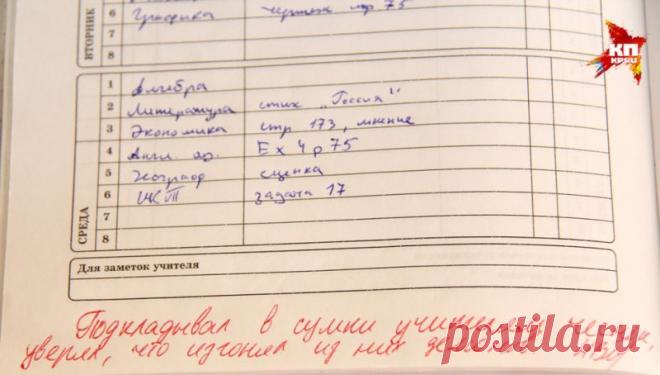 ВТОРНИК
6 Графика чертеж стр 75
7
8
КП
СРЕДА
1 Алгебра
2 Литература стих „Россия"
3 Экономика стр 173, мнение
4 Англ. яз. Ex 4 p 75
5 Географ сценка
6 задача 17
7
8
Для заметок учителя
Подкладывал в сумки учителям чеснок,
уверял, что изгонял из них
postila.ru